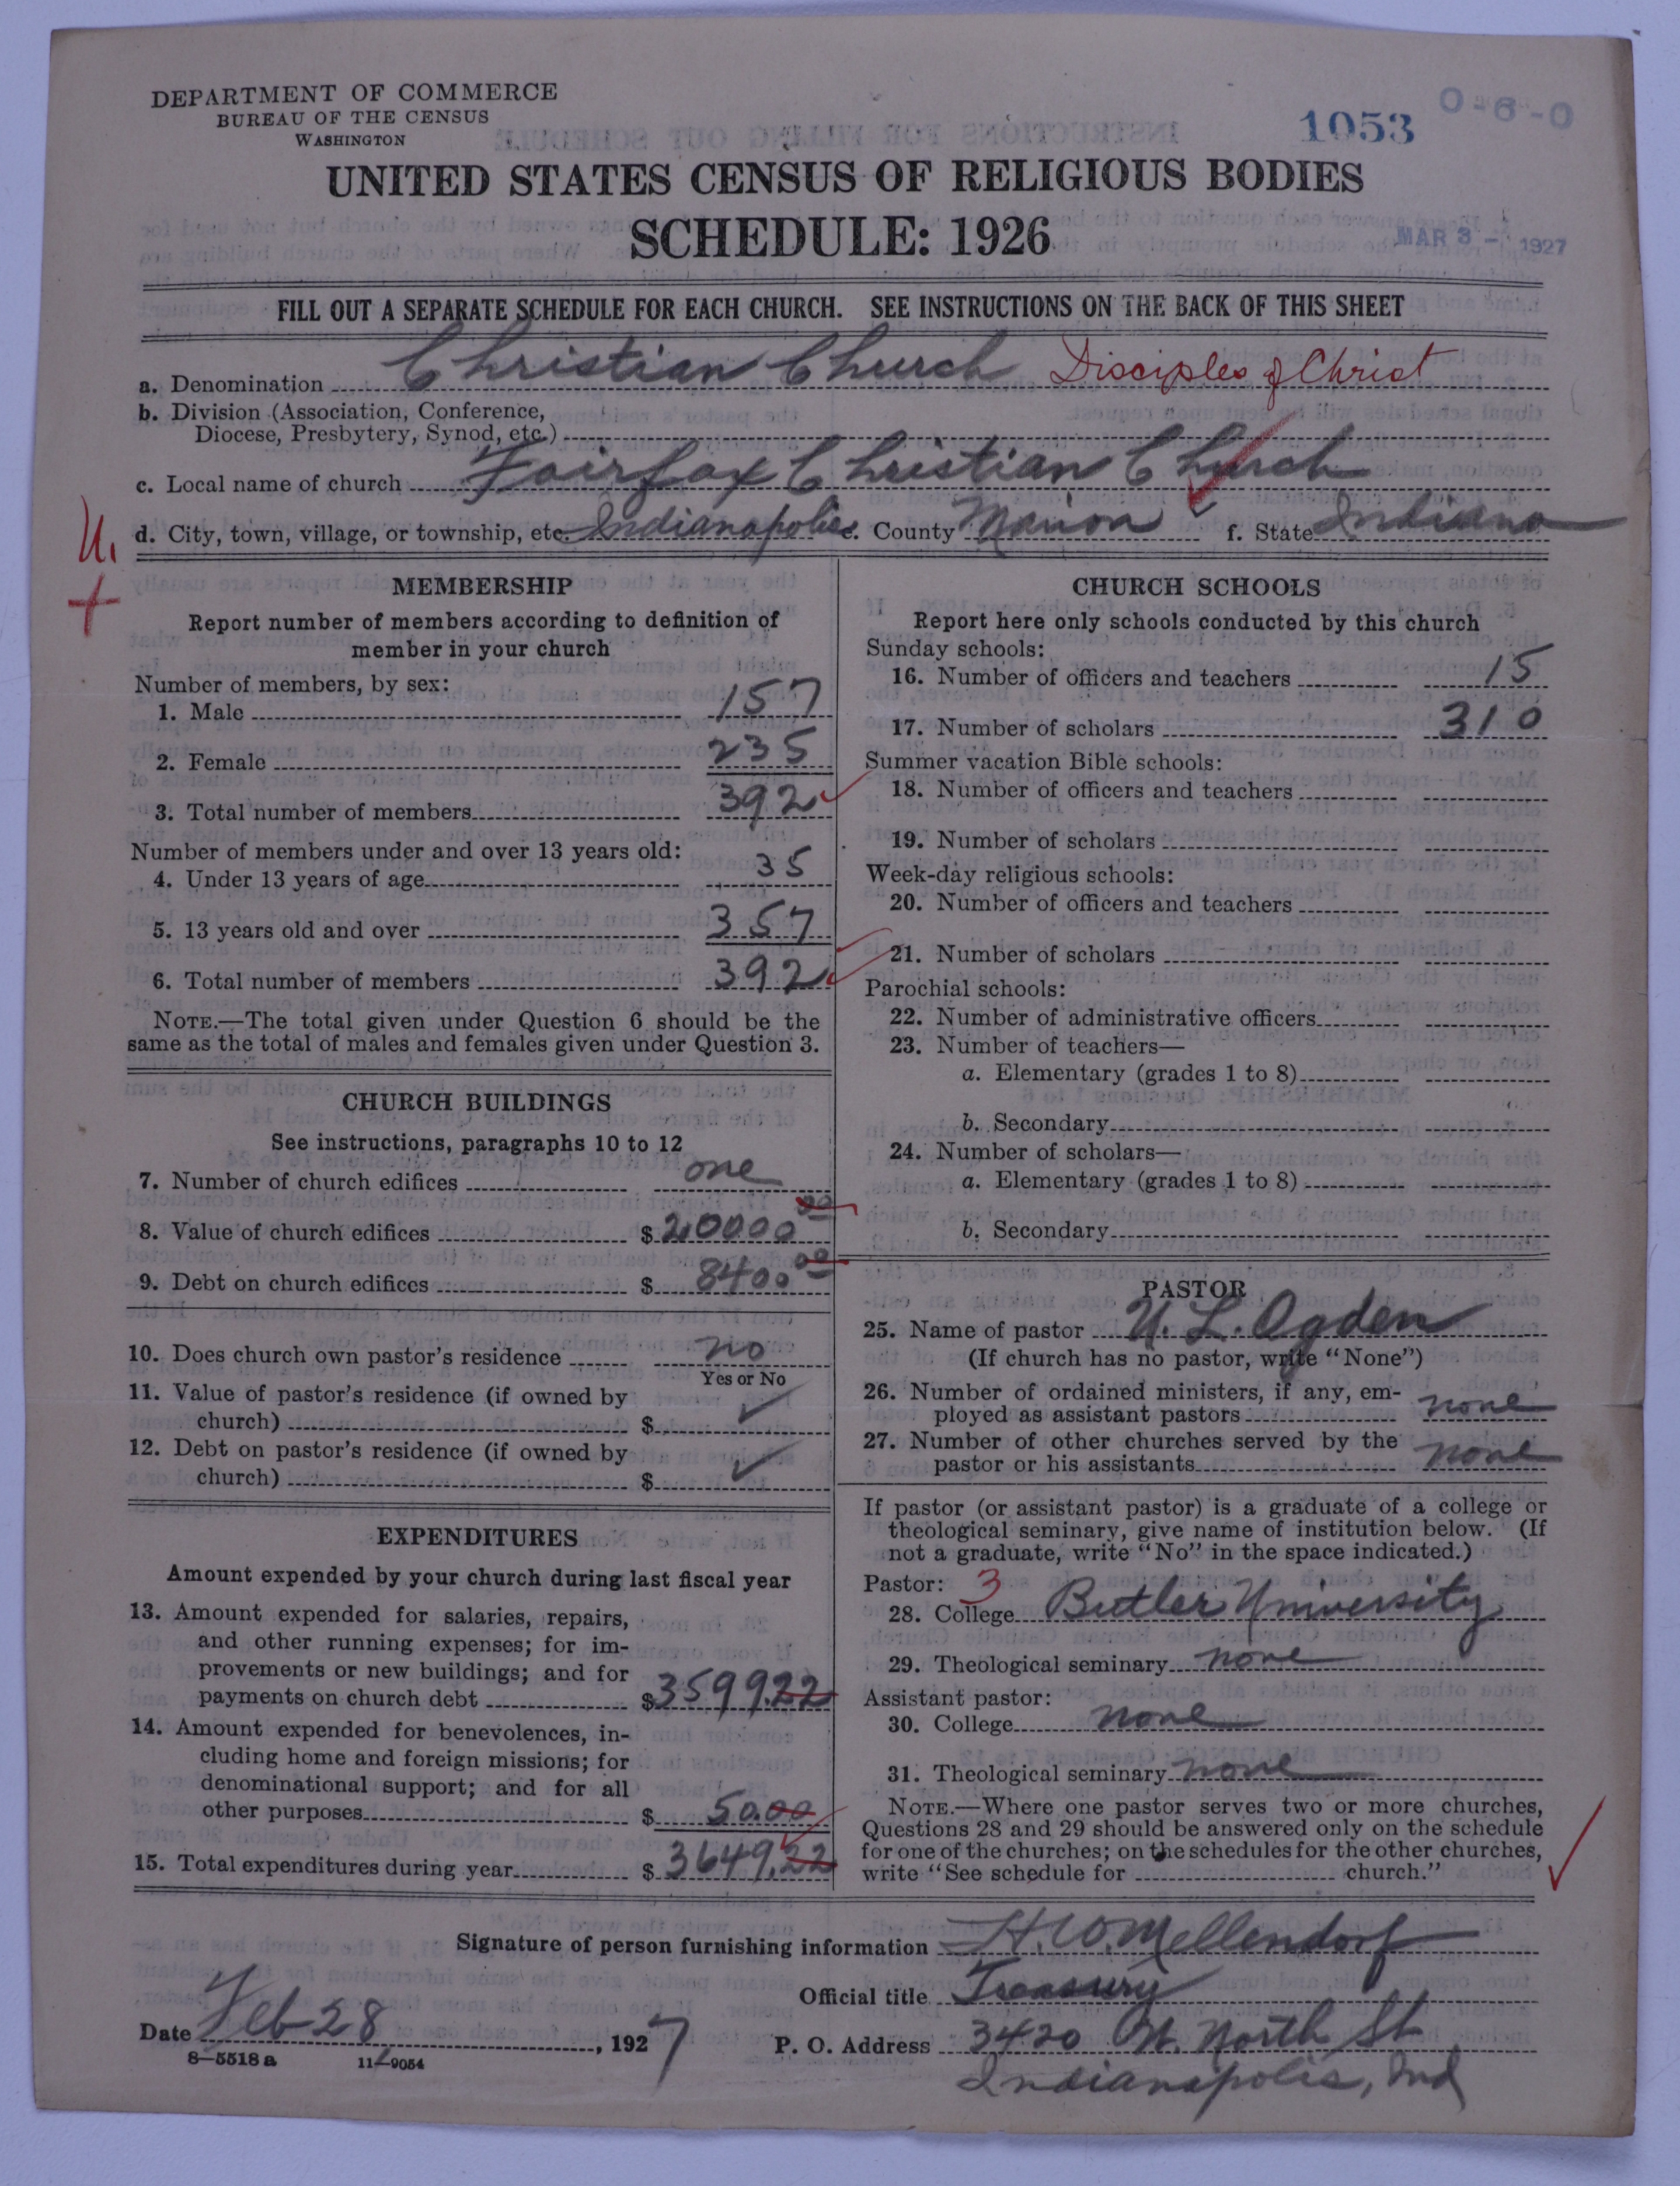 DEPARTMENT OF COMMERCE
BUREAU OF THE CENSUS
WASHINGTON
1053
0-6-0
UNITED STATES CENSUS OF RELIGIOUS BODIES
SCHEDULE: 1926
MAR 3 - 1927
FILL OUT A SEPARATE SCHEDULE FOR EACH CHURCH. SEE INSTRUCTIONS ON THE BACK OF THIS SHEET
a. Denomination Christian Church Disciples of Christ
b. Division (Association, Conference,
Diocese, Presbytery, Synod, etc.)
c. Local name of church Fairfax Christian Church
d. City, town, village, or township, etc. Indianapolis e. County Marion f. State Indiana
U.
+
MEMBERSHIP
Report number of members according to definition of
member in your church
Number of members, by sex:
1. Male 157
2. Female 235
3. Total number of members 392
Number of members under and over 13 years old:
4. Under 13 years of age 35
5. 13 years old and over 357
6. Total number of members 392
NOTE.—The total given under Question 6 should be the
same as the total of males and females given under Question 3.
CHURCH BUILDINGS
See instructions, paragraphs 10 to 12
7. Number of church edifices one
8. Value of church edifices $20000 00
9. Debt on church edifices $ 8400 00
10. Does church own pastor's residence no
Yes or No
11. Value of pastor's residence (if owned by
church) $ ✓
12. Debt on pastor's residence (if owned by
church) $ ✓
EXPENDITURES
Amount expended by your church during last fiscal year
13. Amount expended for salaries, repairs,
and other running expenses; for im-
provements or new buildings; and for
payments on church debt $3599.22
14. Amount expended for benevolences, in-
cluding home and foreign missions; for
denominational support; and for all
other purposes $ 50.00
15. Total expenditures during year $ 3649.22
CHURCH SCHOOLS
Report here only schools conducted by this church
Sunday schools:
16. Number of officers and teachers 15
17. Number of scholars 310
Summer vacation Bible schools:
18. Number of officers and teachers
19. Number of scholars
Week-day religious schools:
20. Number of officers and teachers
21. Number of scholars
Parochial schools:
22. Number of administrative officers
23. Number of teachers—
a. Elementary (grades 1 to 8)
b. Secondary
24. Number of scholars—
a. Elementary (grades 1 to 8)
b. Secondary
PASTOR
25. Name of pastor L. Ogden
(If church has no pastor, write "None")
26. Number of ordained ministers, if any, em-
ployed as assistant pastors none
27. Number of other churches served by the
pastor or his assistants none
If pastor (or assistant pastor) is a graduate of a college or
theological seminary, give name of institution below. (If
not a graduate, write "No" in the space indicated.)
Pastor: 3
28. College Butler University
29. Theological seminary none
Assistant pastor:
30. College none
31. Theological seminary none
NOTE.—Where one pastor serves two or more churches,
Questions 28 and 29 should be answered only on the schedule
for one of the churches; on the schedules for the other churches,
write "See schedule for church."
Signature of person furnishing information H.W. Mellendorf
Official title Treasury
Date Feb 28, 1927
P. O. Address 3420 W. North St
Indianapolis, Ind
8—5518 a 11—9054